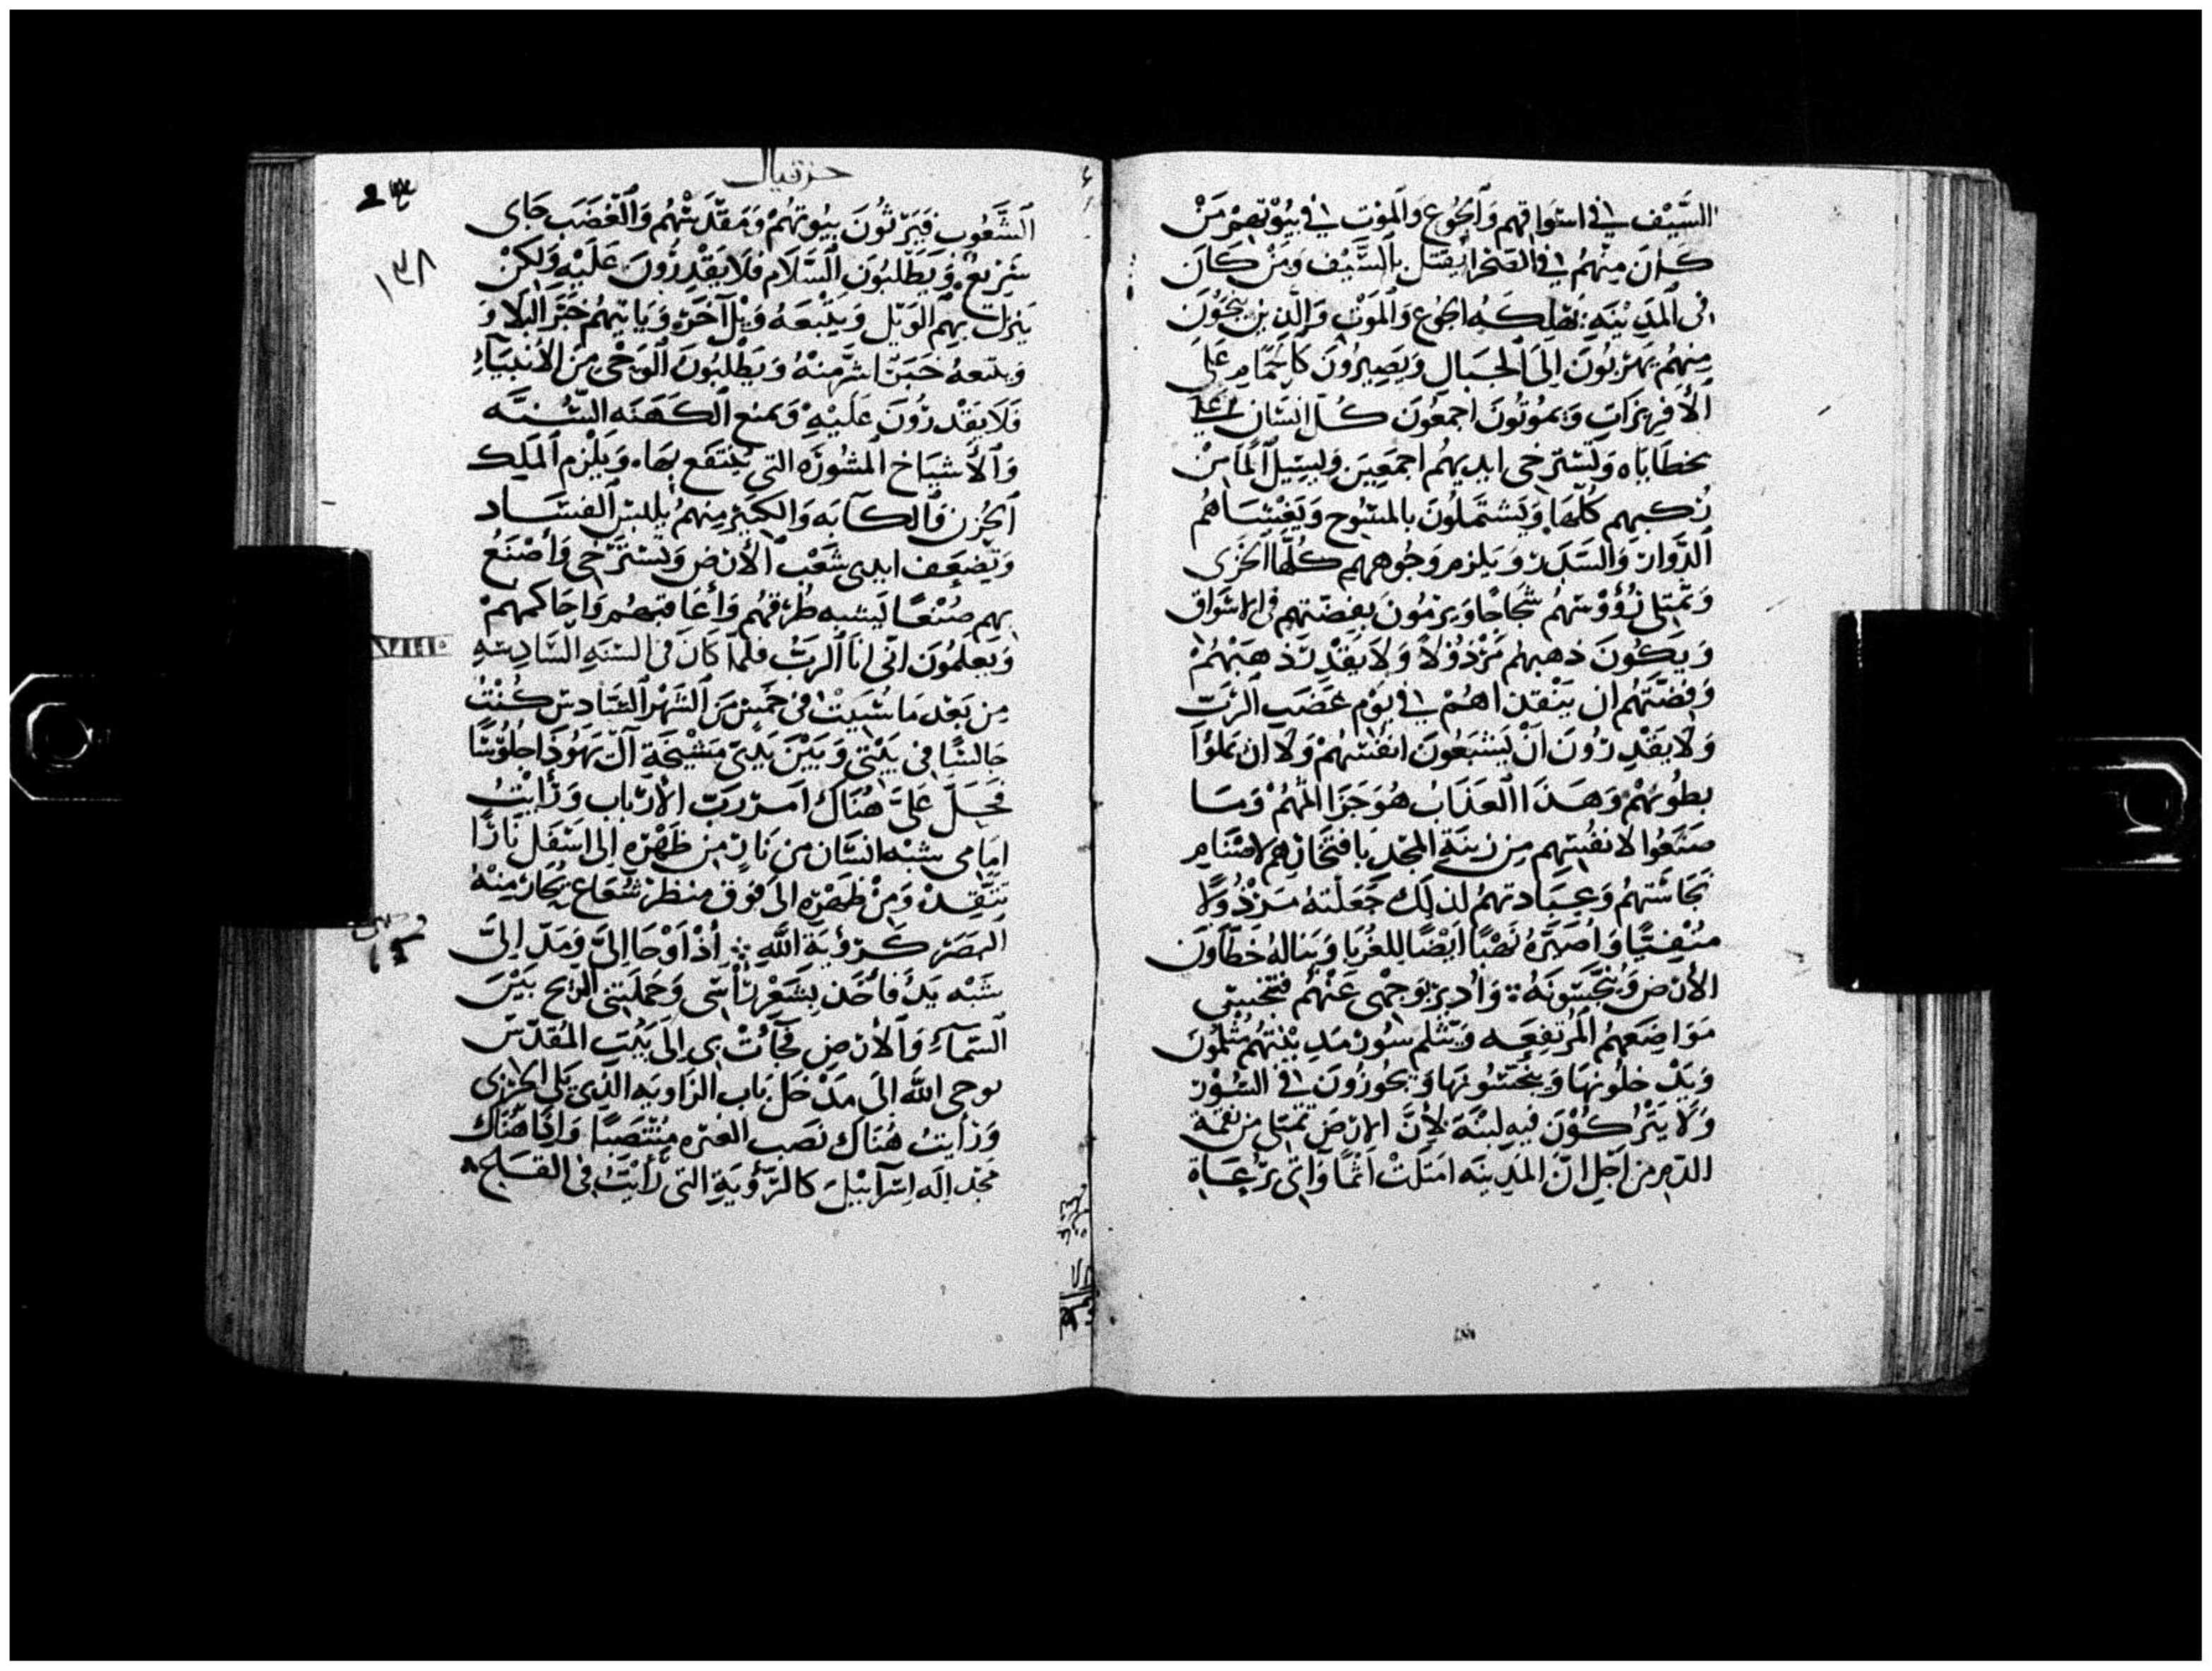 السَّيْف في اسواقهم وَالجُوع وَالمَوْت في بيُوْتهمْ مَنْ
كَانَ مِنْهُمْ في الصَحْرا يُقتَل بالسَّيْف وَمَنْ كَانَ
في المَدِيْنَه يُهلِكَه الجُوع وَالمَوْت وَالَّذِيْن يَنْجُوْنَ
مِنهُمْ يَهرُبُونَ اِلىَ الجبَال وَيَصِيرُونَ كَالحمَام علَى
الأفرِيزَات وَيمُوتُونَ اجمعُونَ كُل انسَان علَى
بخطَايَاه وَتَسْترخى ايديهُم اجمَعِينَ وَليسَيل المَا مِنْ
رُكبهم كُلّهَا وَيَشتَملُونَ بالمسُوح وَيَغْشَاهُم
الدَّوَار وَالسَدَر وَيلزم وجُوههم كُلّهَا الخزى
وَتَمتلى رُؤُوْسهمُ شحَاحًا وَيرمُونَ بفِضّتهم في الاسْوَاق
وَيكُونَ ذهبهُم مَرْذوْلاً وَلاَ يَقْدِر ذهَبَهُمْ
وَفضَّتَهُم ان يَنْقذاهُمْ في يَوْم غضَب الرَبّ
وَلاَ يَقْدِرُونَ اَنْ يَشْبَعُونَ انفُسهُمْ وَلاَ ان يَملوُا
بطُونهمْ وَهَذَا العَذَابُ هُوَ جَزَا اثمهُمْ وَمَا
صَنَعُوا لانفُسهم مِن زينَة المَجد بافتخارهم لاصْنَام
نجَاسَتهُم وَعِبَادتهُم لذلِكَ جَعَلْتهُ مَرْذُولاً
مَنفِيًّا وَاُصَيّرَهُ نَصْبًا اَيْضًا للغُرَبا وَينالهُ خطَّاوُن
الأرْض وَيُنَجّسوْنَهُ ܀ وَاُديرُ بوَجْهى عَنْهُم فتُنجّس
مَوَاضِعهمُ المُرتفِعَه وَيَثلم سُوْر مَديْنتهُم مثلمُونَ
وَيَدْخلُونهَا وَينَجّسُونهَا وَيجُوزُونَ في السُّوْر
وَلاَ يَتْركُوْنَ فيهِ لبنَة لأَنَّ الارْضَ تمتلى مِن نقمة
الدّم مِن اَجْلِ انّ المَدِينَه امتَلَتْ اثْمًا وَاتى برُعَاة
حزقيال
٢٣٤
١٣٨
الشّعُوب فَيَرِثُونَ بيُوتهُمْ وَمَقَدّسهُم وَالغَضَب جَاى
سَرِيع وَيَطْلبُونَ السَّلاَم فَلاَ يَقْدِرُونَ عَلَيْهِ وَلَكِنْ
يَنزِل بهم الوَيْل وَيَتْبَعَهُ وَيْل آخَر وَيَاتيهُم خبَر البَلاَ وَ
وَيتبعهُ خبَرًا اشَرّ مِنْهُ وَيَطْلبُونَ الوَحْى مِنَ الأَنبيَاءِ
فَلاَ يَقْدرُونَ عَلَيْهِ وَيمنع الكَهَنَه السُّنَّه
وَالأَشيَاخ المشُورَه التى يُنتَفَع بِهَا وَيَلْزم المَلِك
الحُزن وَالكآبَه وَالكَبير مِنهمُ يلبس الفسَاد
وَتَضعَف ايدى شَعْب الأَرْض وَتَسْتَرْخى وَاُصْنَعُ
بهم صُنْعًا يَشبه طُرُقهُم وَاُعَاقبهُم وَاُحَاكمهمْ
وَيَعلَمُونَ انّى انَا الرَبّ فلمَّا كَانَ في السَّنَهِ السَّادِسَهِ
مِن بَعْد مَا سُبيتُ في خَمِيس مِنَ الشَّهْر السَّادس كُنْتُ
جَالسًا في بَيْتى وَبَيْنَ يَدَىَّ مَشْيَخَة آل يَهُوذَا جلُوْسًا
فحَلَّ عَلىَّ هُنَاكَ امر رَبّ الأرْبَاب وَرَأَيتُ
امَامى شبْه انسَان مِن نَار مِنْ ظَهْرِهِ اِلى اسْفَل نَارًا
تتَّقِدْ وَمِنْ ظَهْرِهِ اِلى فَوْق منظر شُعَاع يَحَار مِنْهُ
البَصَر كرُؤيَة اللَّه ܀ اُذْ اَوْحَا اِلىَّ وَمَدّ اِلىَّ
شبْه يَدٍ فَأَخَذ بِشَعْر رَأْسى وَحَمَلَتنى الرّيح بَيْنَ
السّمَآءِ وَالأرْض فجَآءتْ بى اِلى بَيْت المُقدّس
بوحى اللَّه اِلى مَدْخل بَاب الزَاويَه الذى يَلى الجَرْبى
وَرَأيتُ هُنَاكَ نَصب الغيره مُنْتَصِبًا وَاِذَا هُنَاك
مَجْد اِلَه اِسْرَآئِيْلَ كَالرُّؤْيَةِ التى رَأَيْتُ في القَلح